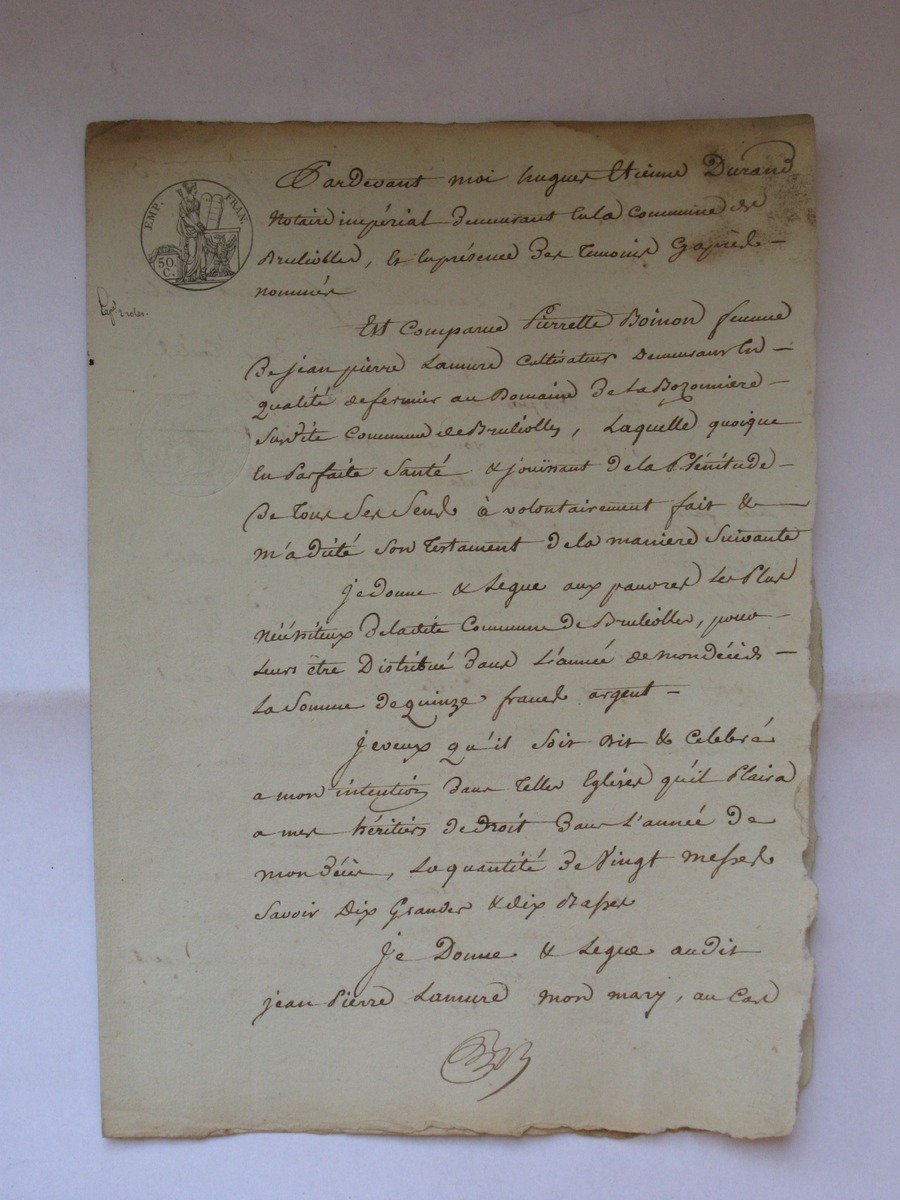 EMP. FRAN.
50. C.
Pardevant moi hugues Etienne Durand
Notaire impérial Demeurant En la Commune de
Bruliolles, Et En présence Des Temoins Cy après
nommés
Est Comparue Pierrette Boinon femme
De jean pierre Lamure Cultivateur Demeurant En
qualité de fermier au Domaine De La Bozonnière
Susdite Commune de Bruliolles, Laquelle quoique
En Parfaite Santé & jouïssant de la Plénitude
De Tous Ses Sens à volontairement fait &
m'a dicté Son Testament de la maniere Suivante
je Donne & Legue aux pauvres Les Plus
nécéssiteux De ladite Commune de Brulioles, pour
Leurs être Distribué Dans L'année de mon décéds
La Somme de quinze francs argent
je veux qu'il Soit Dit & Celebré
a mon intention Dans Telles Eglises qu'il Plaira
a mes héritiers de Droit Dans L'année De
mon décès, La quantité De Vingt Messes
Savoir Dix Grandes & dix Basses
Je Donne & Legue audit
jean Pierre Lamure mon mary, au Cas